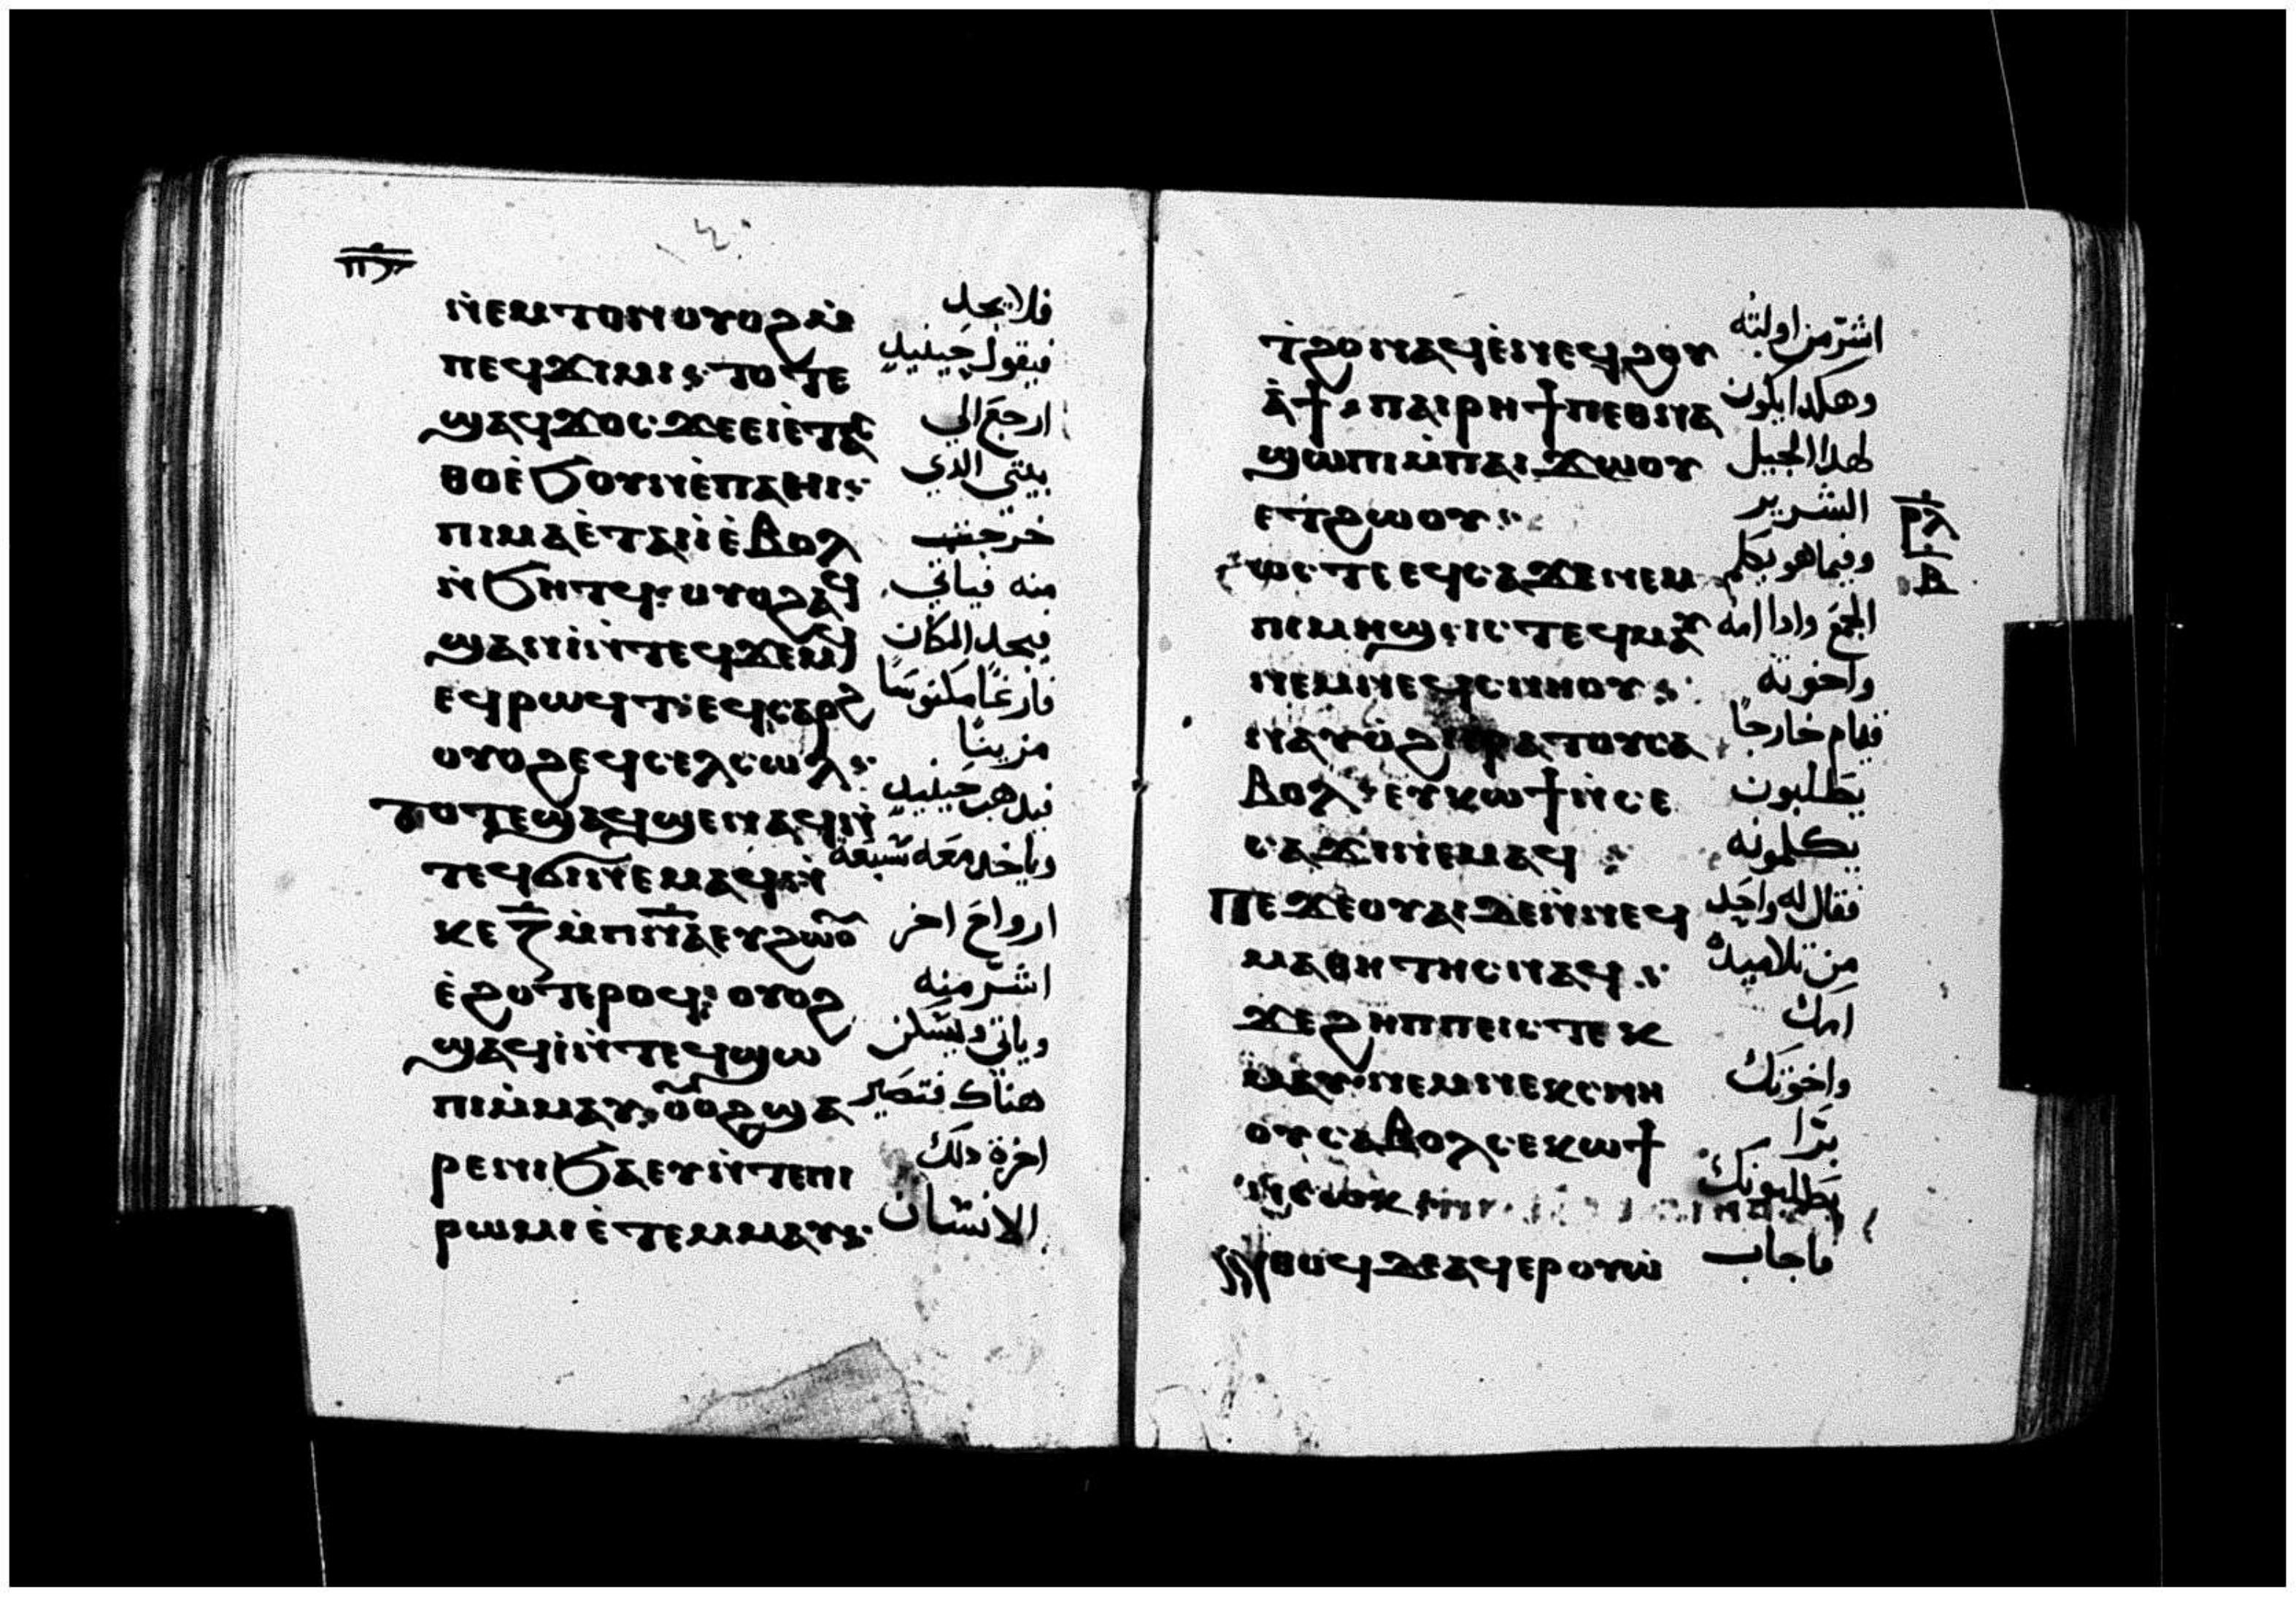 ⲣ̅ⲡ̅
ⲛ̀ⲉⲙⲧⲟⲛⲟⲩⲟϩⲙ̀
ⲡⲉϥϫⲓⲙⲓ: ⲧⲟⲧⲉ
ϣⲁϥϫⲟⲥ ϫⲉⲉⲓⲉ̀ⲧⲁⲥ
ⲑⲟⲉ̀ϧⲟⲩⲛⲉ̀ⲡⲁⲏⲓ:
ⲡⲓⲙⲁⲉ̀ⲧⲁⲓⲓ̀ⲉ̀ⲃⲟⲗ
ⲛ̀ϧⲏⲧϥ: ⲟⲩⲟϩⲁϥ
ϣⲁⲛⲓ̀ⲛ̀ⲧⲉϥϫⲉⲙϥ
ⲉϥⲣⲱϥⲧ: ⲉϥⲥⲁⲣϩ
ⲟⲩⲟϩⲉϥⲥⲉⲗⲥⲱⲗ:
ⲧⲟⲧⲉϣⲁϥϣⲉⲛⲁϥⲛ̀
ⲧⲉϥϭⲓⲛⲉⲙⲁϥⲛ̀
ⲕⲉⲍ̅ⲙ̀ⲡⲛ̅ⲁ̅ⲉⲩϩⲱⲟⲩ
ⲉ̀ϩⲟⲧⲉⲣⲟϥ: ⲟⲩⲟϩ
ϣⲁϥⲓ̀ⲛ̀ⲧⲉϥϣⲱ
ⲡⲓⲙ̀ⲙⲁⲩ: ⲟⲩⲟϩϣⲁ
ⲣⲉⲛⲓϧⲁⲉⲩⲛ̀ⲧⲉⲡⲓ
ⲣⲱⲙⲓⲉ̀ⲧⲉⲙⲙⲁⲩ:
فلا يجد
فيقول حينيد
ارجع الي
بيتي الدي
خرجت
منه فياتي
فيجد المكان
فارغا مكنوسا
مزينا
فيدهب حينيد
وياخد معه سبعة
ارواح اخر
اشر منه
وياتي ويسكن
هناك فتصير
اخرة دلك
الانسان
ⲧ̀ϩⲟⲛⲁϥⲉ̀ⲛⲉϥϩⲟⲩ
ⲁ̀ϯ: ⲡⲁⲓⲣⲏϯⲡⲉⲑⲛⲁ
ϣⲱⲡⲓⲙ̀ⲡⲁⲓϫⲱⲟⲩ
ⲉⲧϩⲱⲟⲩ:
ϩⲱⲥⲧⲉⲉϥⲥⲁϫⲉⲛⲉⲙ
ⲡⲓⲙⲏϣ: ⲓⲥⲧⲉϥⲙⲁⲩ
ⲛⲉⲙⲛⲉϥⲥⲛⲏⲟⲩ:
ⲛⲁⲩⲟ̀ϩⲓⲉⲣⲁⲧⲟⲩⲥⲁ
ⲃⲟⲗ: ⲉⲩⲕⲱϯⲛ̀ⲥⲉ
ⲥⲁϫⲓⲛⲉⲙⲁϥ:
ⲡⲉϫⲉⲟⲩⲁⲓⲇⲉⲛ̀ⲛⲉϥ
ⲙⲁⲑⲏⲧⲏⲥⲛⲁϥ:
ϫⲉϩⲏⲡⲡⲉⲓⲥⲧⲉⲕ
ⲙⲁⲩ: ⲛⲉⲙⲛⲉⲕⲥⲛⲏ
ⲟⲩⲥⲁⲃⲟⲗⲥⲉⲕⲱϯ
ⲛ̀ⲥⲱⲕ
ⲛ̀ⲑⲟϥⲇⲉⲁϥⲉⲣⲟⲩⲱ̀
اشر من اوليته
وهكدا يكون
لهدا الجيل
الشرير
وفيما هو يكلم
الجمع وادا امه
واخوته
قيام خارجا
يطلبون
يكلمونه
فقال له واحد
من تلاميده
امك
واخوتك
برا
يطلبونك
فاجاب
ⲣⲗ
ⲃ